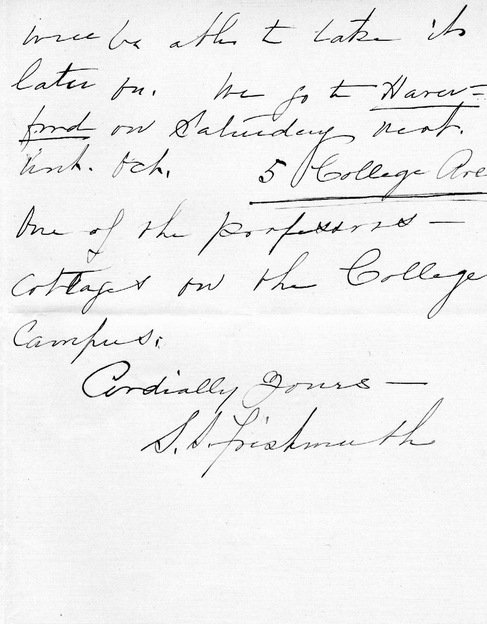 will be able to take it
later on. We go to Haver=
ford on Saturday next.
until Oct. 5 College Ave
One of the professors —
cottages on the College
Campus.
Cordially Yours —
S. S. Frishmuth